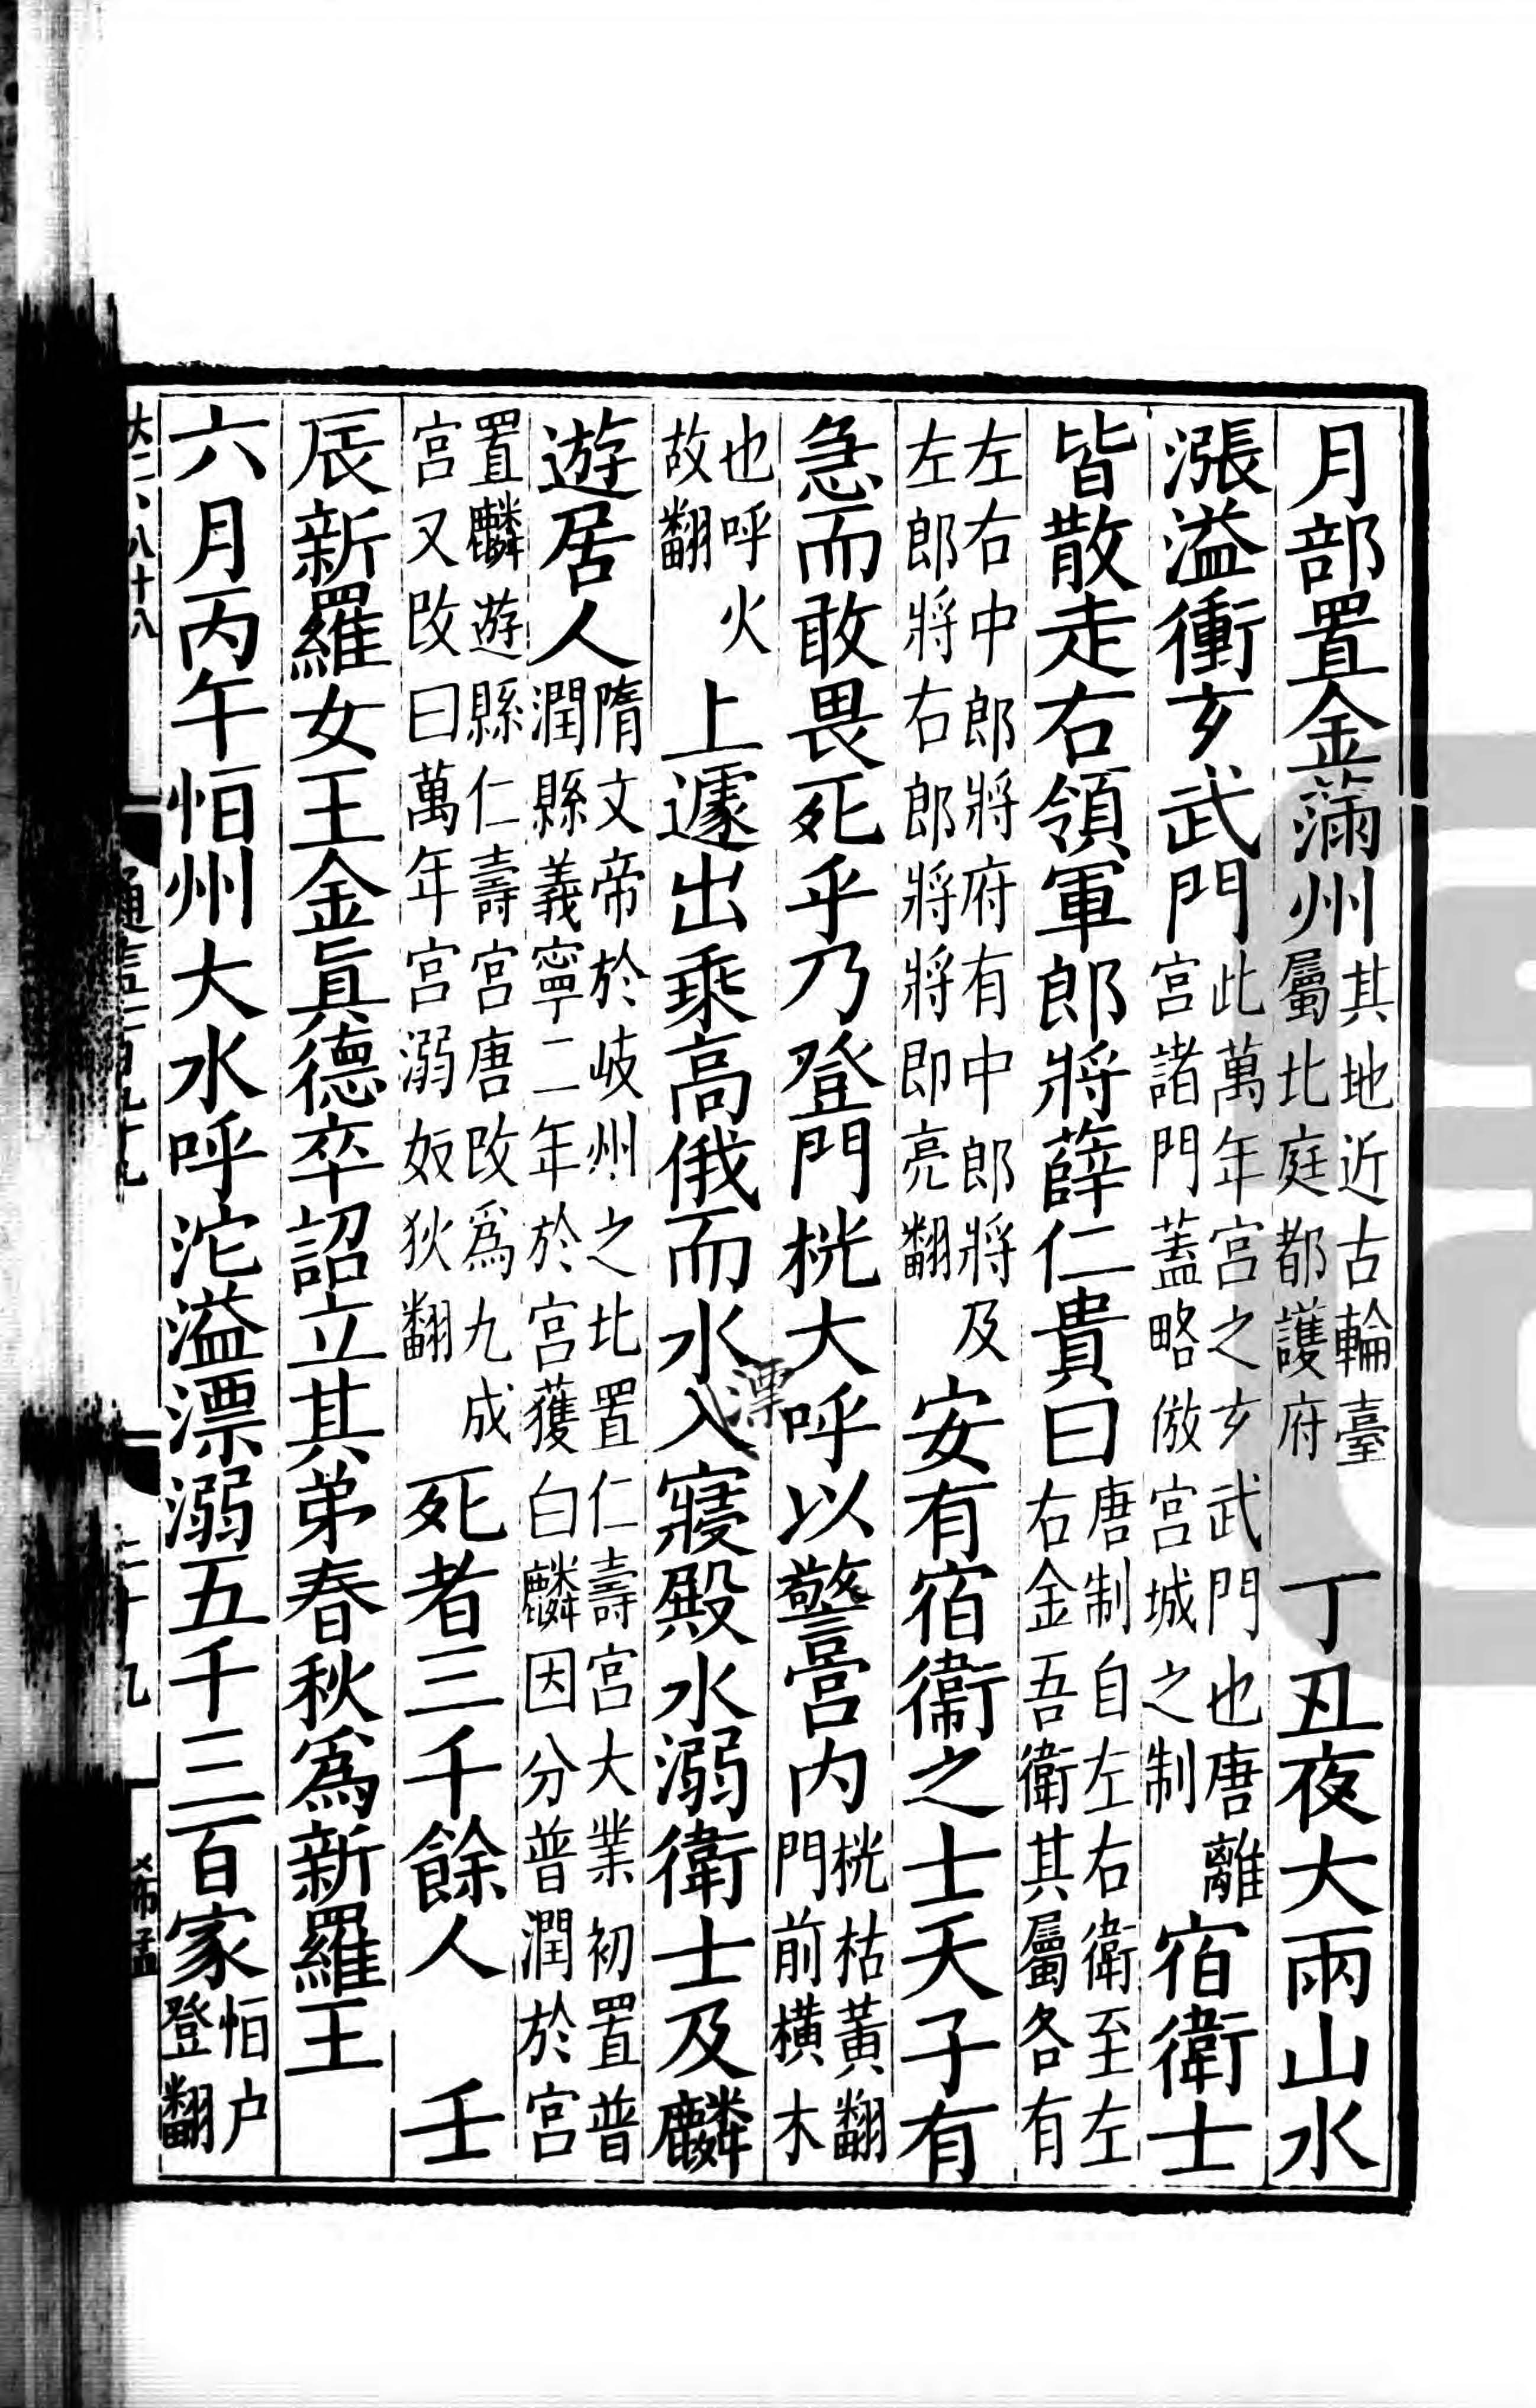 月部置金滿州其地近古輪臺屬北庭都護府　丁丑夜大雨山水
漲溢衝玄武門此萬年宮之玄武門也唐離宮諸門蓋略倣宮城之制宿衛士
皆散走右領軍郎將薛仁貴曰唐制自左右衛至左右金吾衛其屬各有
左右中郎將府有中郎將及左郎將右郎將將即亮翻安有宿衛之士天子有
急而敢畏死乎乃登門桄大呼以警宮內桄枯黃翻門前橫木
也呼火故翻上遽出乘高俄而水入寢殿水溺衛士及麟
遊居人隋文帝於岐州之北置仁壽宮大業初置普潤縣義寧二年於宮獲白麟因分普潤於宮
置麟遊縣仁壽宮唐改爲九成宮又改曰萬年宮溺奴狄翻死者三千餘人　壬
辰新羅女王金眞德卒詔立其弟春秋爲新羅王
六月丙午恒州大水呼沱溢漂溺五千三百家恒戶登翻
漂
希孟